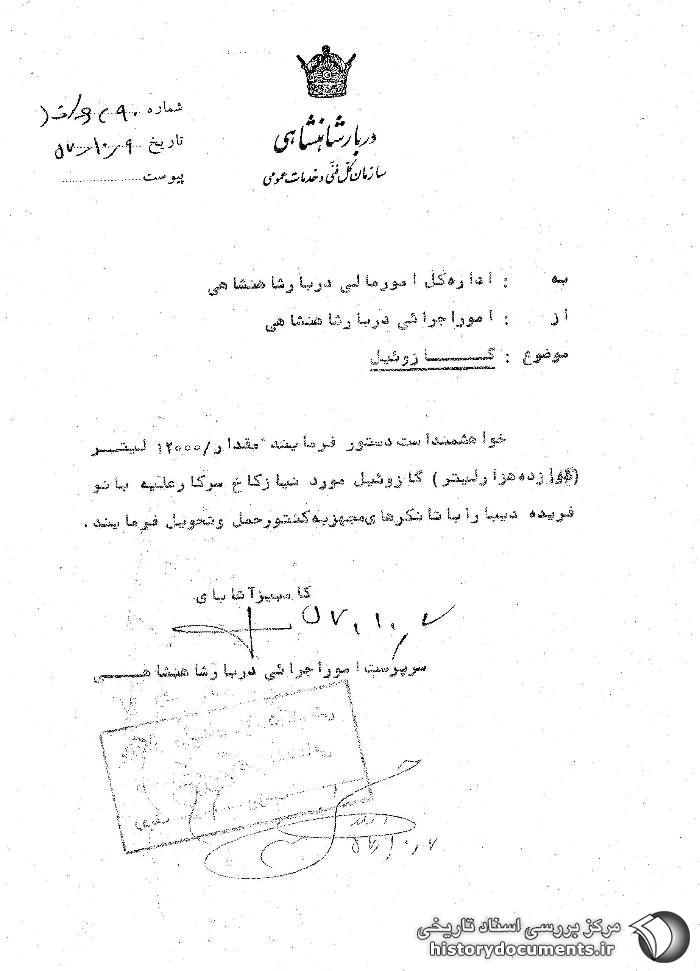 دربار شاهنشاهی
سازمان کل فنی و خدمات عمومی
شماره
تاریخ ۵۷/۱۰/۹
پیوست
به : اداره کل امور مالی دربار شاهنشاهی
از : امور اجرائی دربار شاهنشاهی
موضوع : گازوئیل
خواهشمند است دستور فرمایند مقدار /۱۲۰۰۰ لیتر
(دوازده هزار لیتر) گازوئیل مورد نیاز کاخ سرکار علیه بانو
فریده دیبا را با تانکرهای مجهز به کنتور حمل و تحویل فرمایند.
کامبیز آتابای
۵۷،۱۰،۷
سرپرست امور اجرائی دربار شاهنشاهی
مرکز بررسی اسناد تاریخی
historydocuments.ir